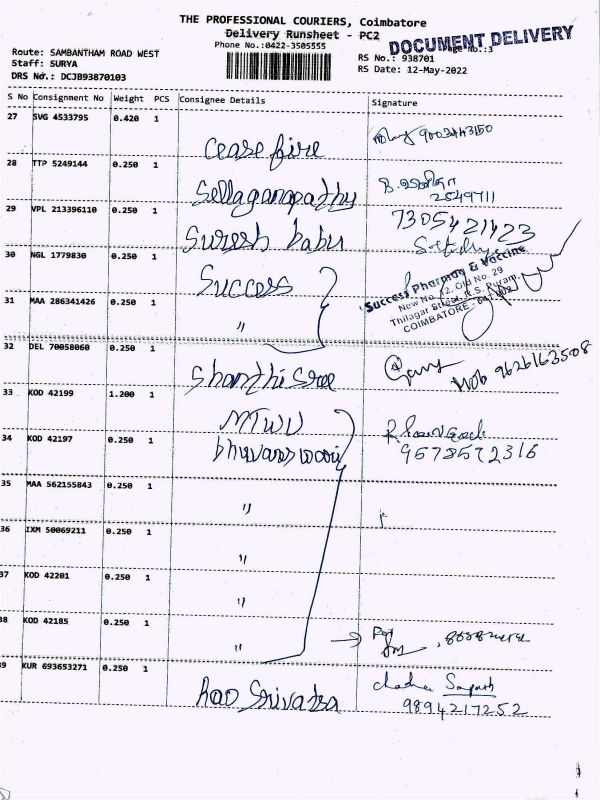 THE PROFESSIONAL COURIERS, Coimbatore
Delivery Runsheet - PC2
Phone No.:0422-3505555
DOCUMENT DELIVERY
Route: SAMBANTHAM ROAD WEST
Staff: SURYA
DRS No.: DCJB93870103
Page No.:3
RS No.: 938701
RS Date: 12-May-2022
S No Consignment No Weight PCS Consignee Details Signature
27 SVG 4533795 0.420 1
Cease fire 9003443150
28 TTP 5249144 0.250 1
Sellaganapathy 2549711
29 VPL 213396110 0.250 1
Suresh babu 7305421423
30 NGL 1779830 0.250 1
Success
Success Pharmacy & Vaccine
New No. 12, Old No. 29
Thilagar Street, R.S. Puram,
COIMBATORE - 641 002
31 MAA 286341426 0.250 1
"
32 DEL 70058060 0.250 1
Shanthi Sree Mob 9626163508
33 KOD 42199 1.200 1
MTWU
34 KOD 42197 0.250 1
bhuvaneswari 9578572316
35 MAA 562155843 0.250 1
"
36 IXM 50069211 0.250 1
"
37 KOD 42201 0.250 1
"
38 KOD 42185 0.250 1
"
39 KUR 693653271 0.250 1
Rao Srivatsa
9894217252